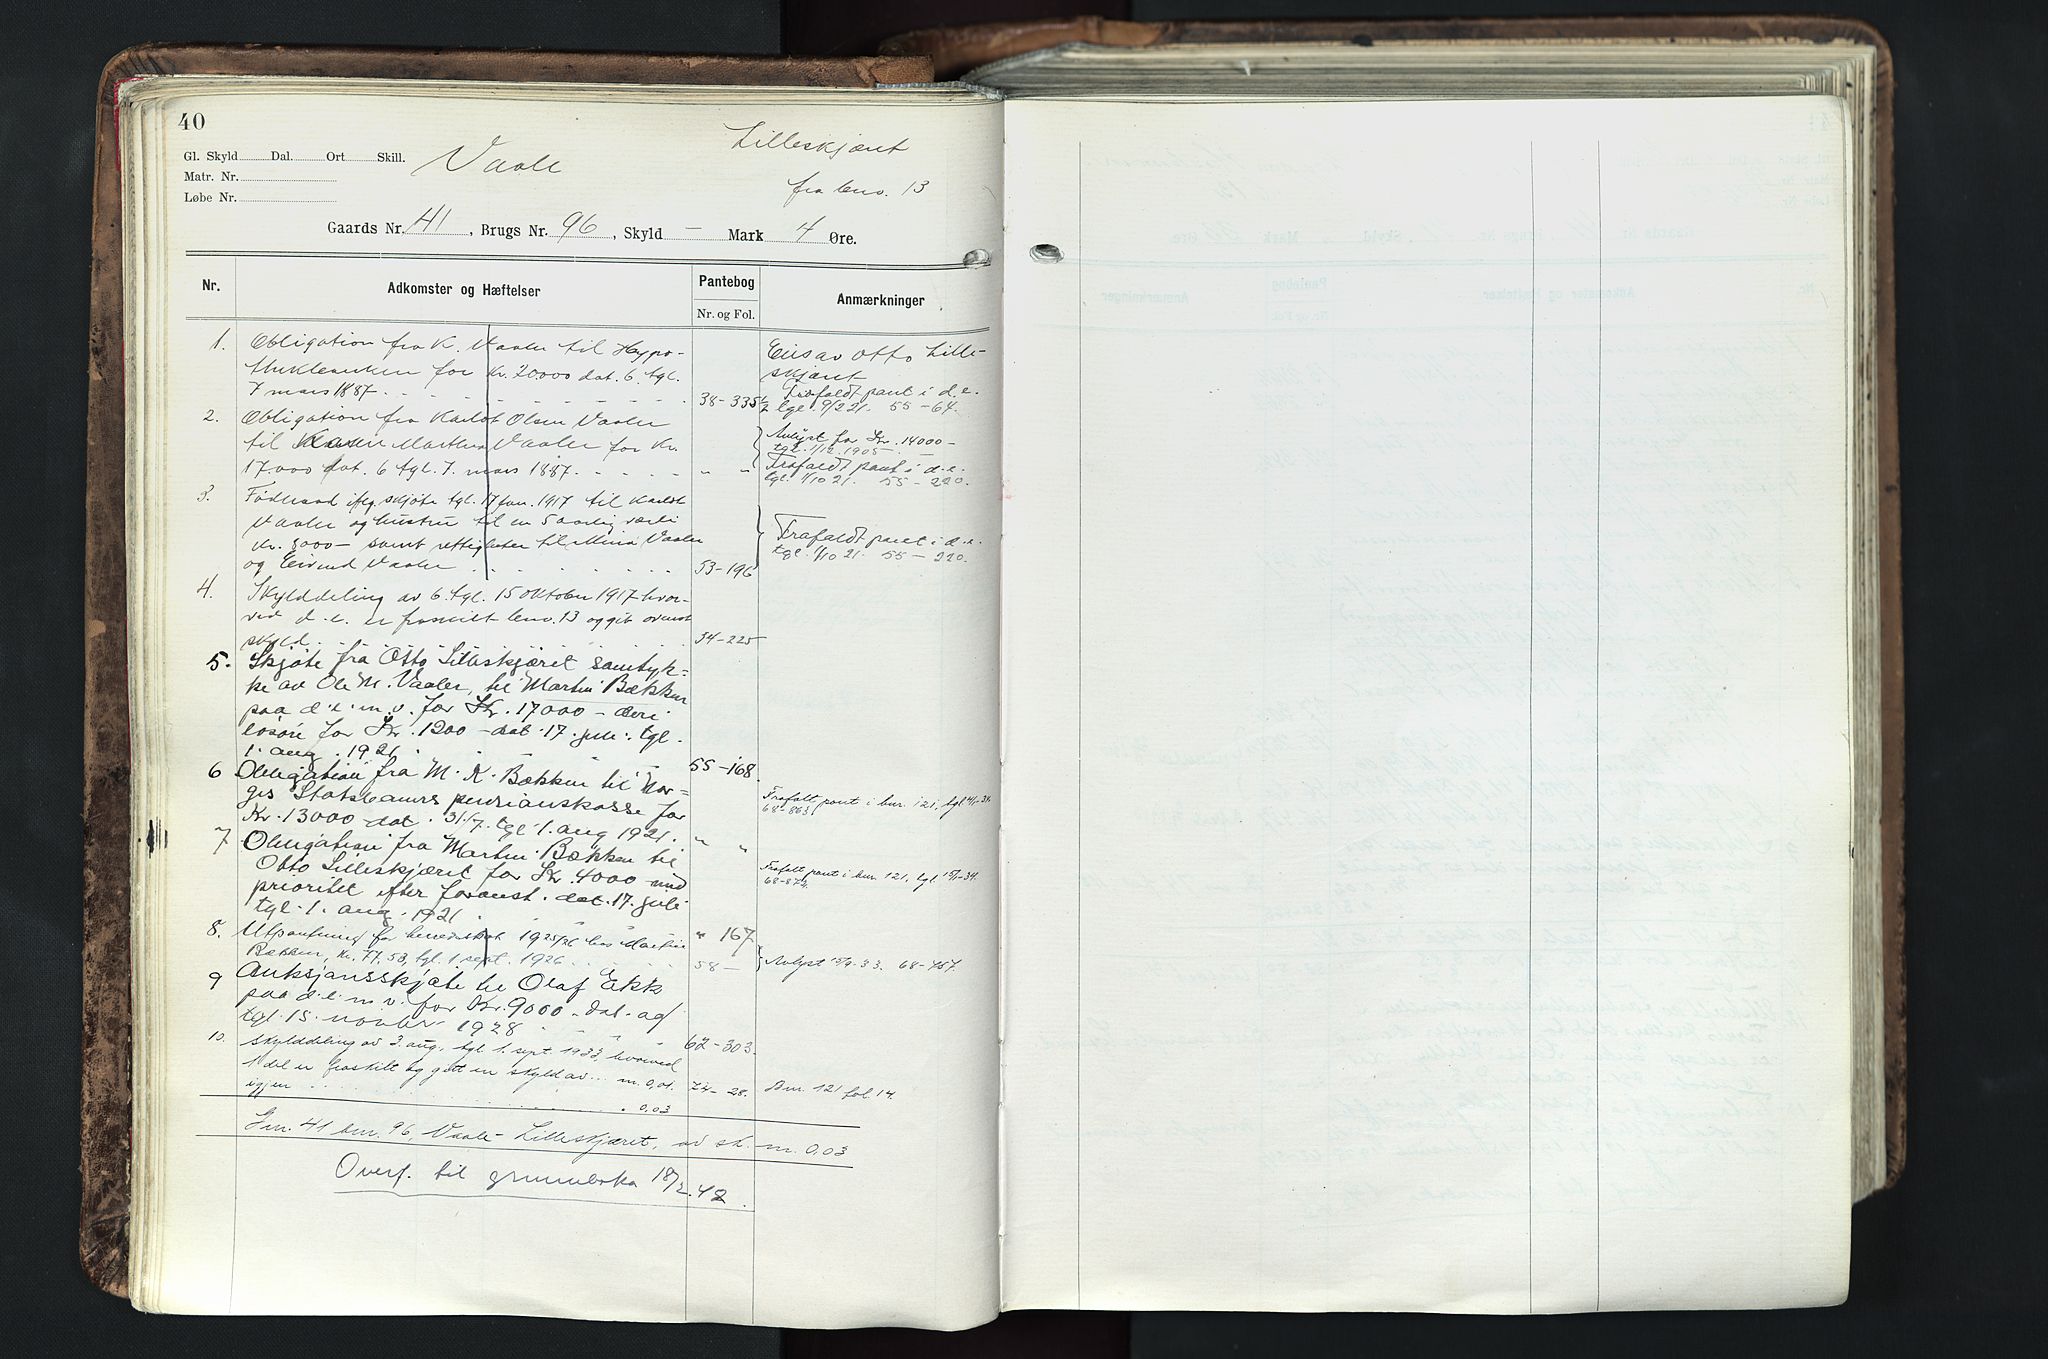 40
Gl. Skyld Dal. Ort Skill.
Matr. Nr.
Løbe Nr.
Vaale
Lilleskjæret
fra bnr. 13
Gaards Nr. 41, Brugs Nr. 96, Skyld – Mark 4 Øre.
Nr.
Adkomster og Hæftelser
Pantebog
Nr. og Fol.
Anmærkninger
1. Obligation fra K. Vaaler til Hypo-
thekbanken for Kr. 20000 dat. 6. tgl.
7 mars 1887. 38-335½
Eies av Otto Lille-
skjæret
Frafaldt pant i d. e.
tgl. 9/2 21. 55-64.
2. Obligation fra Karlot Olsen Vaaler
til Karen Marthea Vaaler for Kr.
17000 dat. 6 tgl. 7. mars 1887. " "
Avlyst for Kr. 14000-
tgl. 1/12 1905.
Frafaldt pant i d. e.
tgl. 1/10 21. 55-220.
3. Føderaad iflg. skjøte tgl. 17 jan. 1917 til Karlot
Vaaler og hustru til en 5 aarlig værdi
kr. 8000- samt rettigheter til Mina Vaaler
og Eivind Vaaler 53-196
Frafaldt pant i d. e.
tgl. 1/10 21. 55-220.
4. Skylddeling av 6. tgl. 15 oktober 1917 hvor-
ved d. e. er fraskilt bnr. 13 og git ovenst
skyld. 34-225
5. Skjøte fra Otto Lilleskjæret samtyk-
ke av Ole M. Vaaler, til Martin Bækken
paa d. e. m. v. for Kr. 17000 - deri
løsøre for Kr. 1200 - dat. 17. juli. tgl.
1. aug. 1921 55-168
6 Obligation fra M. K. Bækken til Nor-
ges Statsbaners pensjonskasse for
Kr. 13000 dat. 31/7. tgl. 1. aug 1921. " "
Frafalt pant i bnr. 121, tgl 4/1-34.
68-863.
7 Obligation fra Martin Bækken til
Otto Lilleskjæret for Kr. 4000 med
prioritet efter foranst. dat. 17. juli
tgl. 1. aug. 1921 " 167
Frafalt pant i bnr. 121, tgl 15/1-34.
68-873.
8. Utpantning for 1925/26 hos Martin
Bækken, kr. 77,53, tgl. 1 sept. 1926 58-
Avlyst 15/9. 33. 68-757.
9 Auksjonsskjøte til Olaf Ekk
paa d. e. m. v. for Kr. 9000 - dat. og
tgl. 15. novbr. 1928 62-303.
10. Skylddeling av 3. aug., tgl. 1. sept. 1933, hvorved
1 del er fraskilt og gitt en skyld av ... m. 0,01. 74-28.
Bnr. 121 fol. 14.
igjen . 0,03
Gnr. 41 bnr. 96, Vaale-Lilleskjæret, av sk. m. 0,03
Overf. til grunnboka 18/2.42.